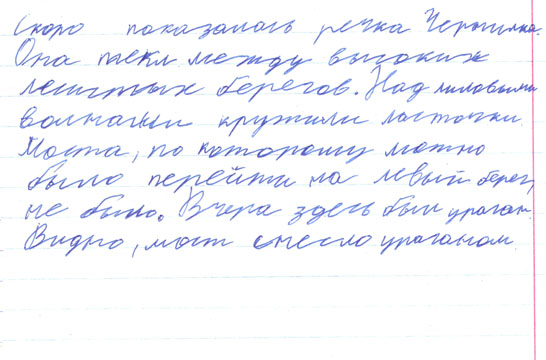 Скоро показалась речка
Она текл между высоких
берегов. Над лиловыми
волнами кружили ласточки.
Моста, по которому можно
было перейти на левый берег,
не было. Вчера здесь был ураган.
Видно, мост снесло ураганом.